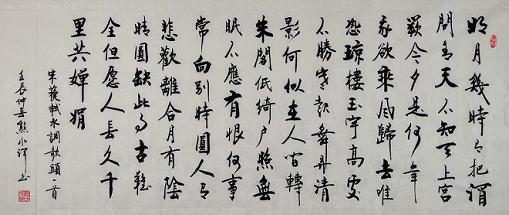 明月幾時有把酒
問青天不知天上宮
闕今夕是何年
我欲乘風歸去唯
恐瓊樓玉宇高處
不勝寒起舞弄清
影何似在人間轉
朱閣低綺戶照無
眠不應有恨何事
常向別時圓人有
悲歡離合月有陰
晴圓缺此事古難
全但愿人長久千
里共嬋娟
宋蘇軾水調歌頭一首
壬辰仲春熊